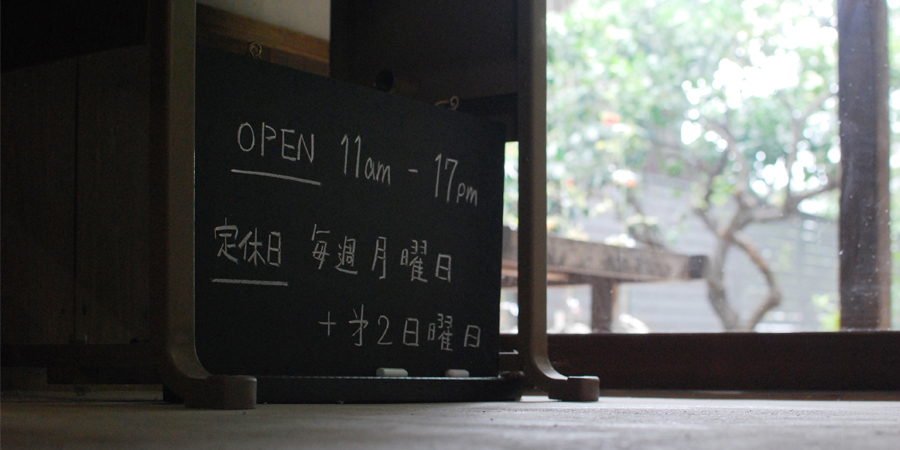 OPEN 11am - 17pm
定休日 毎週月曜日
+ 㐧2日曜日